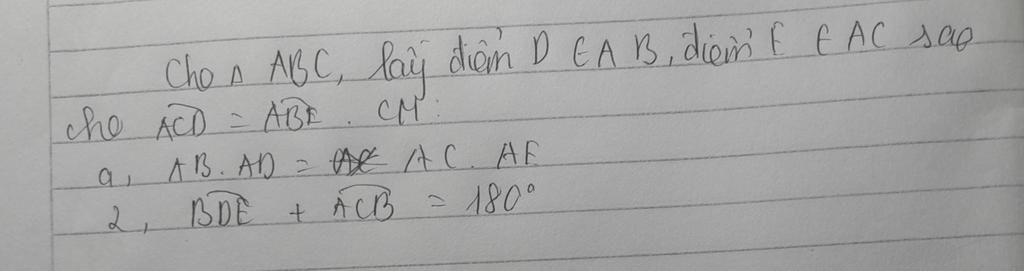 Cho Δ ABC, lấy điểm D ∈ AB, điểm E ∈ AC sao
cho ACD = ABE . CM:
a, AB. AD = AC. AE
2, BDE + ACB = 180°